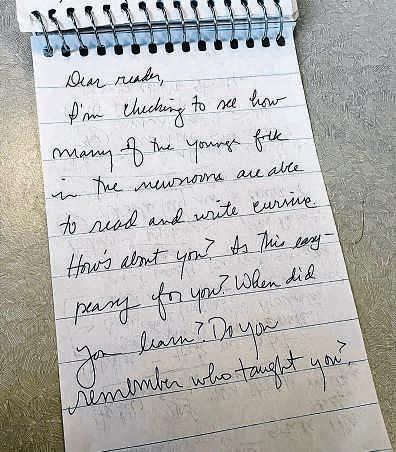 Dear reader,
I'm checking to see how
many of the younge folk
in the newsroom are able
to read and write cursive.
How's about you? Is this easy-
peasy for you? When did
you learn? Do you
remember who taught you?